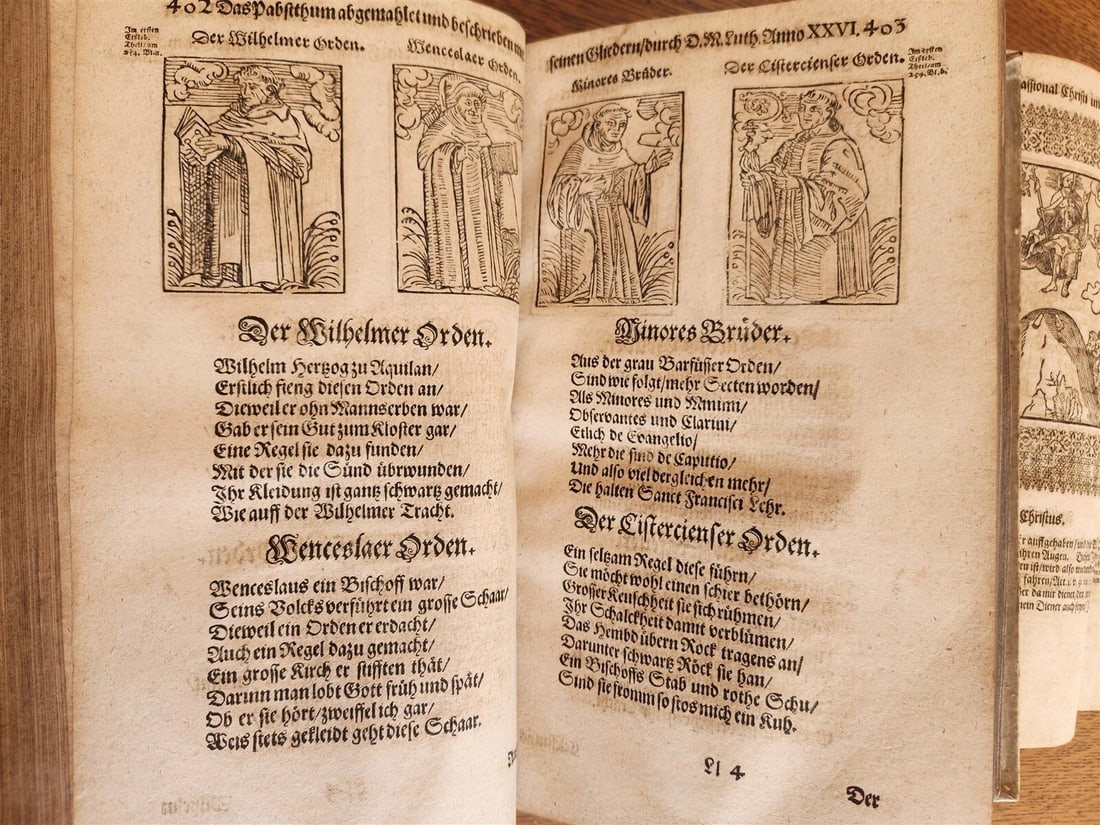 402 Das Pabstthum abgemahlet und beschrieben
Im ersten
Eisleb.
Theil/am
254. Bl.a.
Der Wilhelmer Orden.
Wenceslaer Orden.
Der Wilhelmer Orden.
Wilhelm Hertzog zu Aquilan/
Erstlich fieng diesen Orden an/
Dieweil er ohn Mannserben war/
Gab er sein Gut zum Kloster gar/
Eine Regel sie dazu funden/
Mit der sie die Sünd übrwunden/
Ihr Kleidung ist gantz schwartz gemacht/
Wie auff der Wilhelmer Tracht.
Wenceslaer Orden.
Wenceslaus ein Bischoff war/
Seins Volcks verführt ein grosse Schaar/
Dieweil ein Orden er erdacht/
Auch ein Regel dazu gemacht/
Ein grosse Kirch er stifften thät/
Darinn man lobt Gott früh und spät/
Ob er sie hört/zweiffel ich gar/
Weis stets gekleidt geht diese Schaar.
seinen Gliedern/durch D.M.Luth. Anno XXVI. 403
Minores Brüder.
Der Cistercienser Orden.
Im ersten
Eisleb.
Theil/am
254. Bl.b.
Minores Brüder.
Aus der grau Barfüsser Orden/
Sind wie folgt/mehr Secten worden/
Als Minores und Minimi/
Observantes und Clarini/
Etlich de Evangelio/
Mehr die sind de Caputio/
Und also viel dergleichen mehr/
Die halten Sanct Francisci Lehr.
Der Cistercienser Orden.
Ein seltzam Regel diese führn/
Sie möcht wohl einen schier bethörn/
Grosser Keuschheit sie sich rühmen/
Ihr Schalckheit damit verblümen/
Das Hembd übern Rock tragens an/
Darunter schwartz Röck sie han/
Ein Bischoffs Stab und rothe Schu/
Sind sie fromm so stos mich ein Kuh.
Ll 4
Der
assional Christi
Christus.
auffgehaben